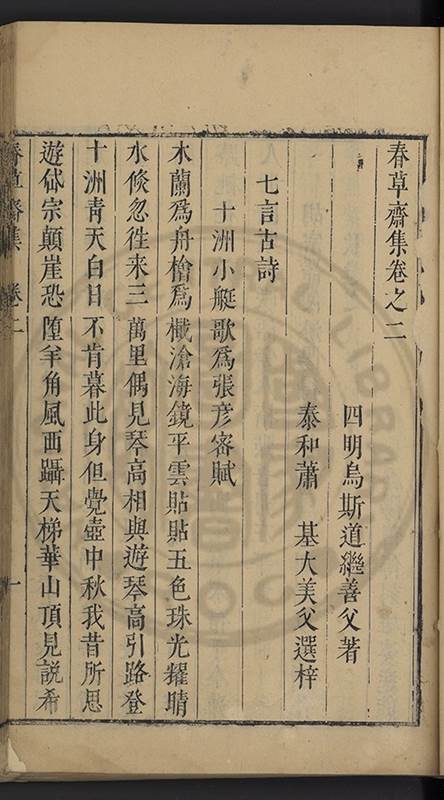 春草齋集卷之二
四明烏斯道繼善父著
泰和蕭　基大美父選梓
七言古詩
十洲小艇歌爲張彥密賦
木蘭爲舟檜爲檝滄海鏡平雲貼貼五色珠光耀晴
水倐忽徃来三萬里偶見琴高相與遊琴高引路登
十洲青天白日不肯暮此身但覺壺中秋我昔所思
遊岱宗顛崖恐墮羊角風西躡天梯華山頂見説希
春草齋集　卷二　一